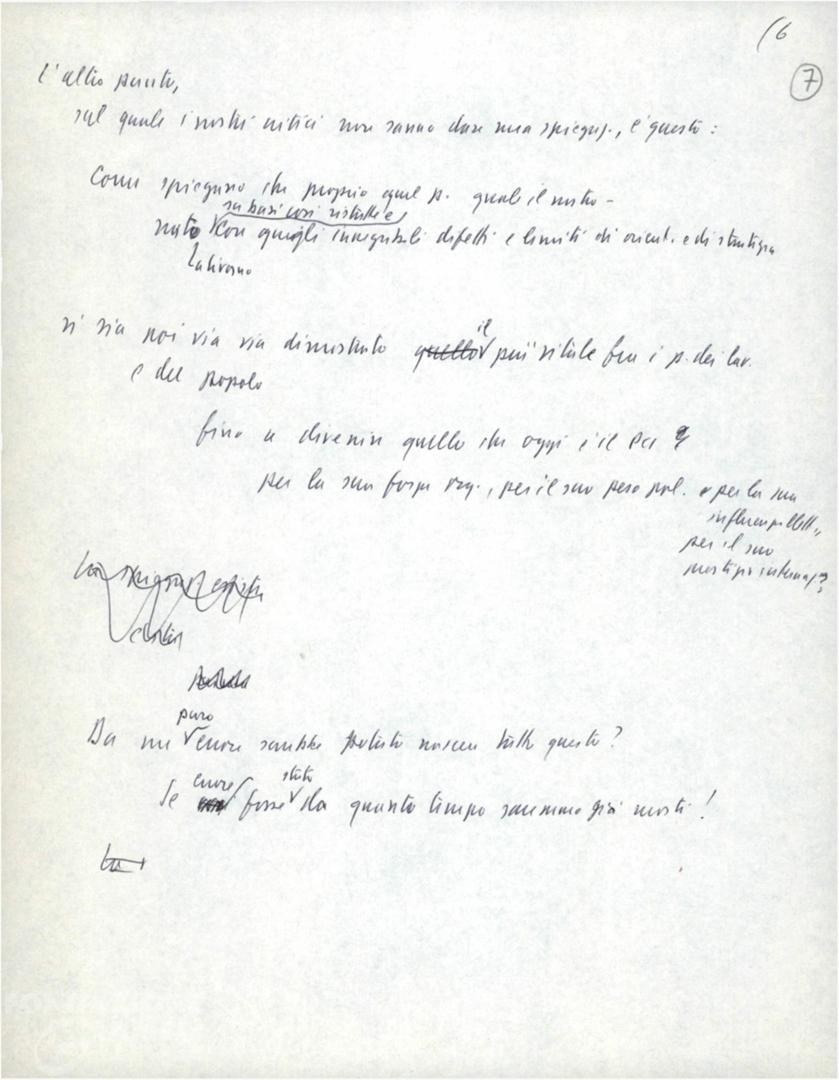 (6
7
L'altro punto,
sul quale i nostri critici non sanno dare una spiegaz., è questo:
Come spiegano che proprio quel p. quale il nostro -
su basi così ristrette e
nato con quegli innegabili difetti e limiti di orient. e di strategia
a Livorno
si sia poi via via dimostrato quello il più vitale fra i p. dei lav.
e del popolo
fino a divenire quello che oggi è il PCI
per la sua forza org., per il suo peso pol. e per la sua
influenza
per il suo
prestigio internaz?
La
puro
Da un errore sarebbe potuto nascere tutto questo?
errore stato
Se fosse da quanto tempo saremmo già morti!
La